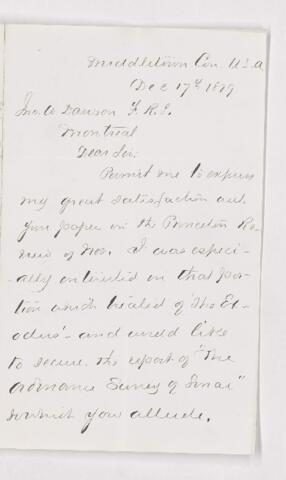 Middletown Con. U.S.A
Dec 17th 1879
Jno. W Dawson F.R.S.
Montreal
Dear Sir:
Permit me to express
my great satisfaction
your paper in the Princeton Re-
view of Nov. I was especi-
-ally interested in that por-
tion which treated of "the Ex-
odus" - and would like
to secure the report of "The
Ordnance Survey of Sinai"
to which you allude.